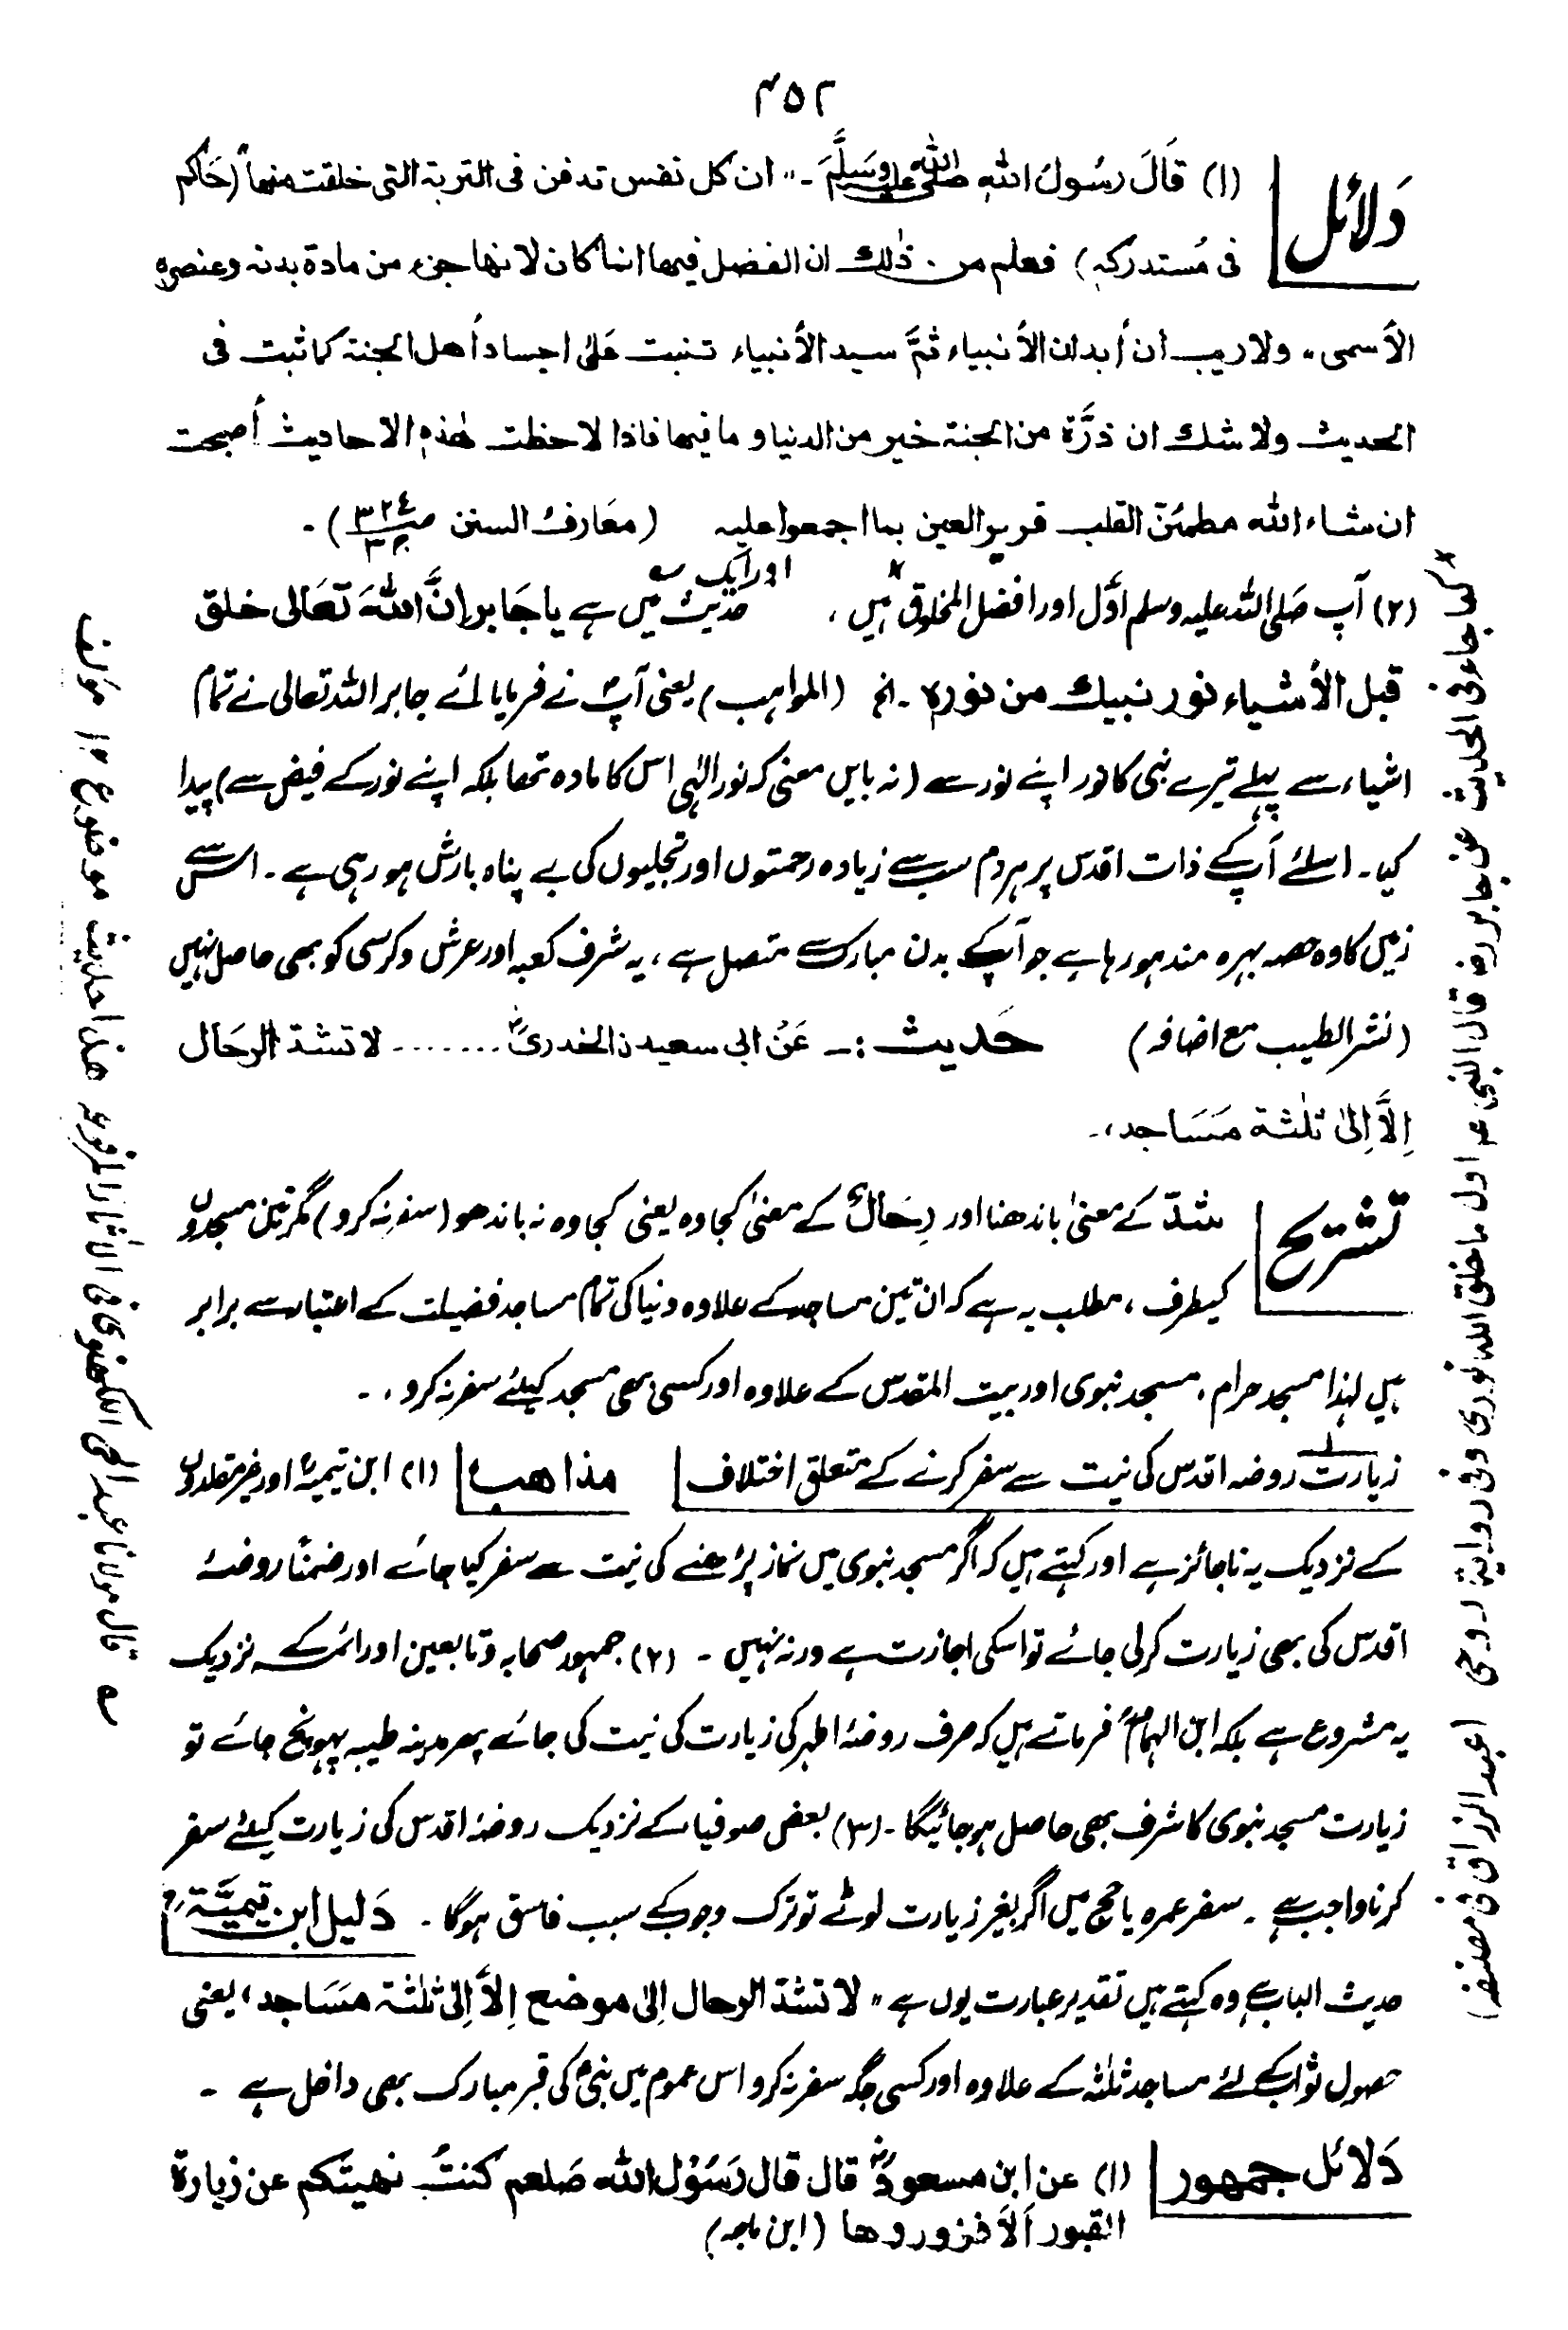 ۴۵۲
دَلائل (۱) قَالَ رسُولُ اللہِ صلی اللہ علیہ وَسَلَّمَ ۔" ان کل نفس تدفن فی التربۃ التی خلقت منھا" (حَاکم
فی مُستدرکہٖ) فعلم من ذٰلک ان الفضل فیھا انما کان لانھا جزء من مادۃ بدنہ وعنصرہ
الأسمی، ولا ریب أن أبدان الأنبیاء ثمَّ سید الأنبیاء تنبت عَلیٰ اجساد أھل الجنۃ کما ثبت فی
الحدیث ولا شک ان ذرَّۃ من الجنۃ خیر من الدنیا و ما فیھا فاذا لاحظت ھٰذہ الاحادیث أصبحت
ان شاء اللہ مطمئن القلب قریر العین بما اجمعوا علیہ (معَارف السنن ص۳۲۴ ج۳)۔
(۲) آپ صَلی اللہ علیہ وسلم اوَّل اور افضل المخلوق ہیں، اور ایک حدیث میں ہے یا جَابر اِنَّ اللہَ تعَالی خلق
قبل الأشیاء نور نبیک من نورہ ۔ الخ (المواہب) یعنی آپؐ نے فرمایا لے جابر اللہ تعالی نے تمام
اشیاء سے پہلے تیرے نبی کا نور اپنے نور سے (نہ بایں معنی کہ نور الٰہی اس کا مادہ تھا بلکہ اپنے نور کے فیض سے) پیدا
کیا۔ اسلئے آپ کے ذات اقدس پر ہر دم سب سے زیادہ رحمتوں اور تجلیوں کی بے پناہ بارش ہو رہی ہے۔ اس سے
زمین کا وہ حصہ بہرہ مند ہو رہا ہے جو آپ کے بدن مبارک سے متصل ہے، یہ شرف کعبہ اور عرش و کرسی کو بھی حاصل نہیں
(نشر الطیب مع اضافہ) حَدیث :۔ عَن ابی سعید ن الخدریؓ ....... لا تشدّ الرحَال
اِلَّا اِلیٰ ثلٰثۃ مَسَاجد،۔
تشریح شدّ کے معنیٰ باندھنا اور رِحَالٌ کے معنیٰ کجاوہ یعنی کجاوہ نہ باندھو (سفر نہ کرو) مگر تین مسجدوں
کیطرف، مطلب یہ ہے کہ ان تین مساجد کے علاوہ دنیا کی تمام مساجد فضیلت کے اعتبار سے برابر
ہیں لہذا مسجد حرام، مسجد نبوی اور بیت المقدس کے علاوہ اور کسی بھی مسجد کیلئے سفر نہ کرو،۔
زیارت روضہ اقدس کی نیت سے سفر کرنے کے متعلق اختلاف مذاھب (۱) ابن تیمیہؒ اور غیر مقلدوں
کے نزدیک یہ ناجائز ہے اور کہتے ہیں کہ اگر مسجد نبوی میں نماز پڑھنے کی نیت سے سفر کیا جائے اور ضمناً روضۂ
اقدس کی بھی زیارت کرلی جائے تو اسکی اجازت ہے ورنہ نہیں ۔ (۲) جمہور صحابہ و تابعین اور ائمہ کے نزدیک
یہ مشروع ہے بلکہ ابن الہمامؒ فرماتے ہیں کہ صرف روضۂ اطہر کی زیارت کی نیت کی جائے پھر مدینہ طیبہ پہونچ جائے تو
زیارت مسجد نبوی کا شرف بھی حاصل ہوجائیگا۔ (۳) بعض صوفیاء کے نزدیک روضۂ اقدس کی زیارت کیلئے سفر
کرنا واجب ہے ۔ سفر عمرہ یا حج میں اگر بغیر زیارت لوٹے تو ترک وجوب کے سبب فاسق ہوگا ۔ دَلیل ابن تیمیَّۃؒ
حدیث الباب ہے وہ کہتے ہیں تقدیر عبارت یوں ہے " لا تشدّ الرحال اِلیٰ موضع اِلاَّ اِلیٰ ثلٰثۃ مسَاجد، یعنی
حصول ثواب کے لئے مساجد ثلٰثہ کے علاوہ اور کسی جگہ سفر نہ کرو اس عموم میں نبیؐ کی قبر مبارک بھی داخل ہے ۔
دَلائل جمھور (۱) عن ابن مسعودؓ قال قال رَسُول اللہ صَلعم کنتُ نھیتکم عن زیارۃ
القبور اَلاَ فزوروھا (ابن ماجہ)
کما جاء فی الحدیث عن جابر رض قال النبی ص اول ما خلق اللہ نوری وفی روایۃ روحی (عبد الرزاق فی مصنفہ)
قال مولانا عبد الحی اللکھنوی فی الآثار المرفوعۃ ھذا حدیث موضوع ۱۲ مؤلف